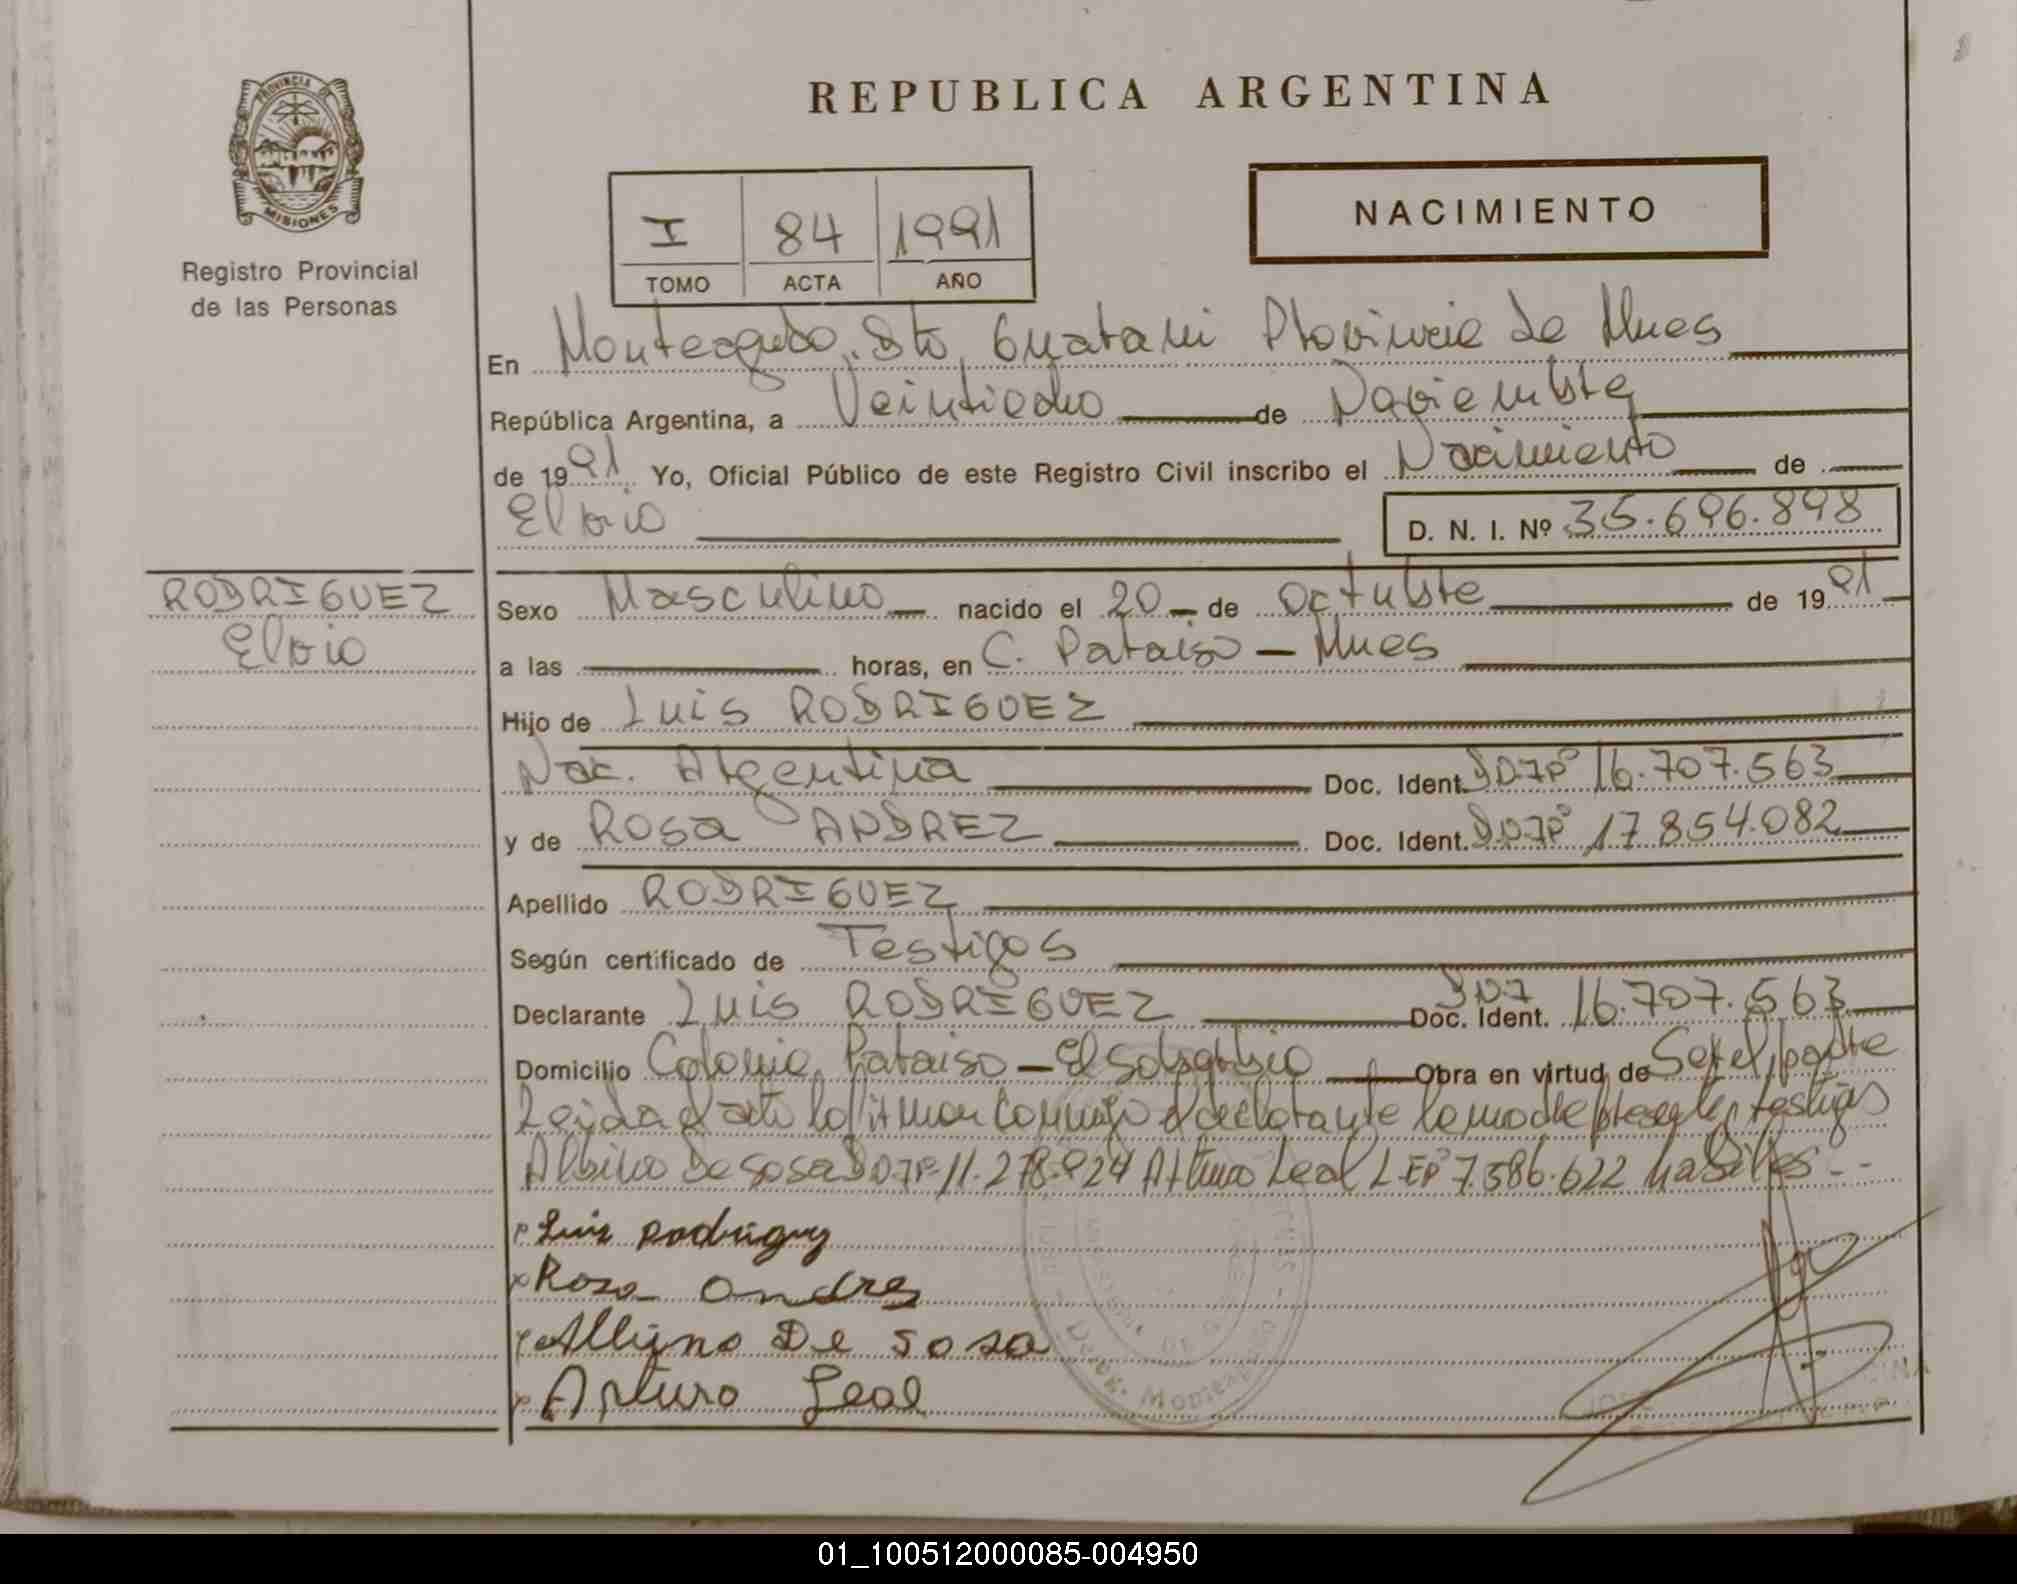 PROVINCIA DE
MISIONES
Registro Provincial
de las Personas
REPUBLICA ARGENTINA
I 84 1991
TOMO ACTA AÑO
NACIMIENTO
En Monteagudo. Dto. Guarani Provincia de Mnes
República Argentina, a Veintiocho de Noviembre
de 1991 Yo, Oficial Público de este Registro Civil inscribo el Nacimiento de
Elvio
D. N. I. Nº 35.696.898
RODRIGUEZ
Elvio
Sexo Masculino nacido el 20 de Octubre de 1991
a las horas, en C. Paraiso - Mnes
Hijo de Luis RODRIGUEZ
Nac. Argentina Doc. Ident. DNINº 16.707.563
y de Rosa ANDREZ Doc. Ident. DNINº 17.854.082
Apellido RODRIGUEZ
Según certificado de Testigos
Declarante Luis RODRIGUEZ Doc. Ident. DNI 16.707.563
Domicilio Colonia Paraiso - El Soberbio Obra en virtud de Ser el padre
Leida el acta la firman conmigo el declarante la madre presente testigos
Albino De Sosa DNINº 11.278.924 Arturo Leal LENº 7.586.622 habiles--
Luis Rodriguez
x Rosa Andres
x Albino De Sosa
x Arturo Leal
01_100512000085-004950